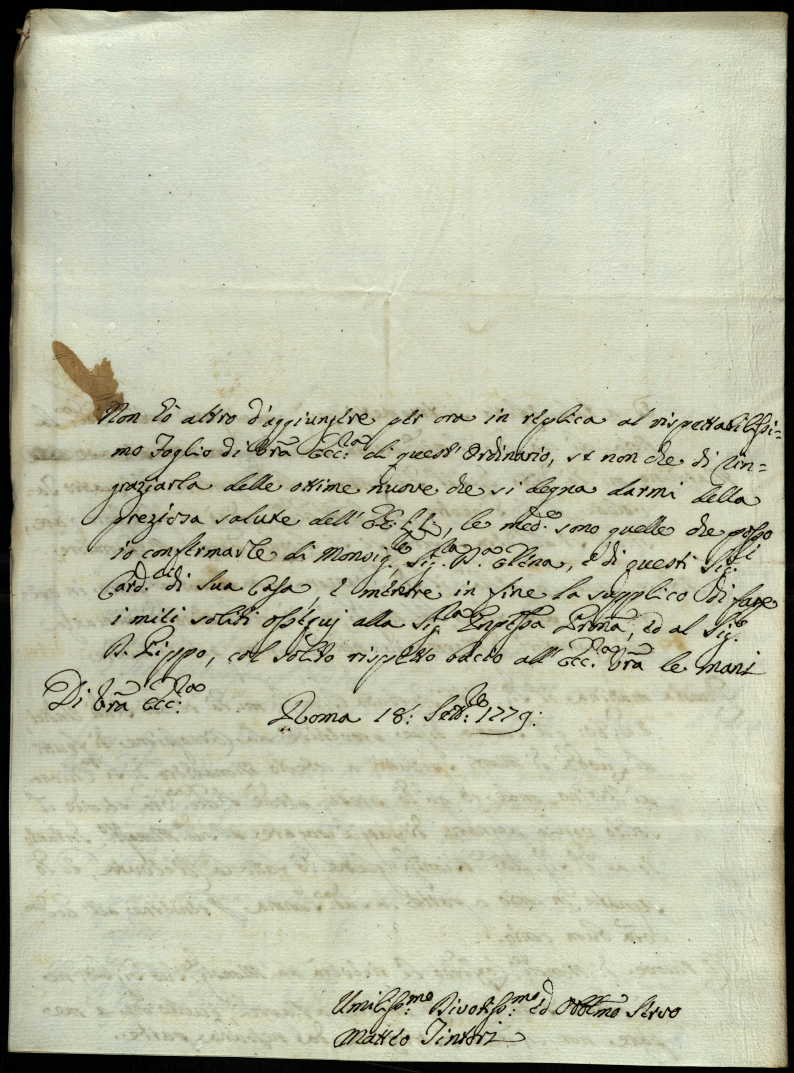 Non hò altro d'aggiungere per ora in replica al rispettabilissi=
mo Foglio di Vrã Ecc:za di quest'Ordinario, se non che di rin=
graziarla delle ottime nuove che si degna darmi della
preziosa salute dell' EE. LL., le med:e sono quelle che posso
io confirmarle di Monsig:re, Sig:ra D:a Elena, e di questi Sig:ri
Card:li di Sua Casa, e mentre in fine la supplico di fare
i miei soliti ossequj alla Sig:ra Pnpessa Prma, ed al Sig:e
D. Lippo, col solito rispetto bacio all' Ecc:za Vrã le mani
Di Vrã Ecc:za
Roma 18: Sett:bre 1779:
Umiliss:mo Divotiss:mo ed Obblmo Servo
Matteo Tintori